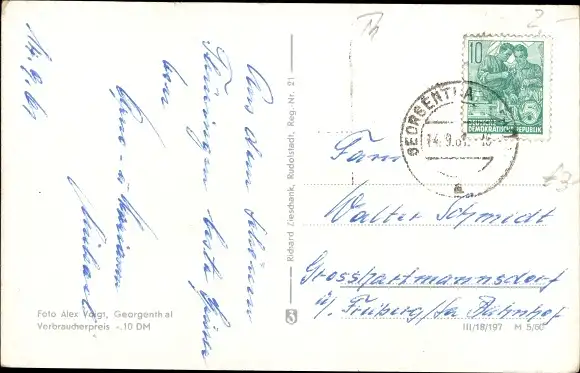 Aus dem schönen
Thüringen beste Grüsse
von
Foto Alex Voigt, Georgenthal
Verbraucherpreis -.10 DM
Richard Zieschank, Rudolstadt, Reg.-Nr. 21
10
DEUTSCHE
DEMOKRATISCHE REPUBLIK
14.9.61
a
2-
Fam
Walter Schmidt
Grosshartmannsdorf
ü/. Freiberg/Sa Bahnhof
III/18/197 M 5/60